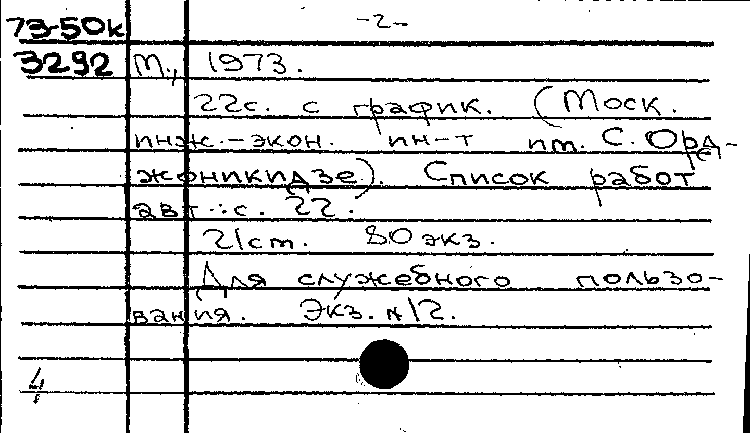 73-50к -2-
3292 М., 1973.
22с. с график. (Моск.
инж.-экон. ин-т им. С. Орд-
жоникидзе). Список работ
авт.: с. 22.
21см. 80 экз.
Для служебного пользо-
вания. Экз. №12.
4